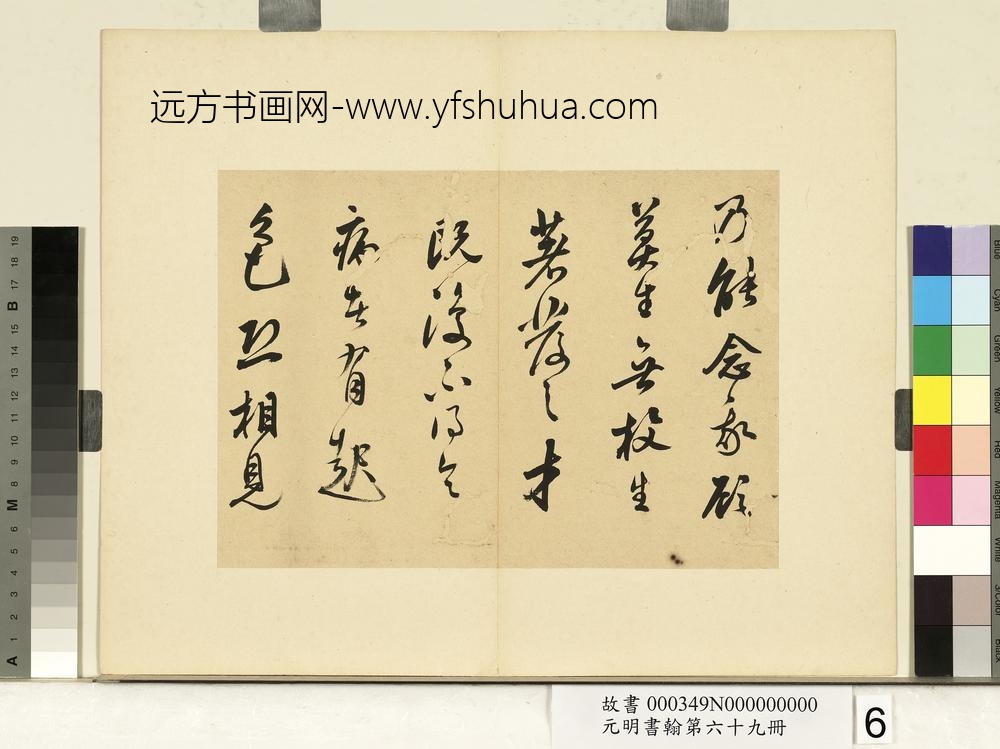 远方书画网-www.yfshuhua.com
乃能念我顧
生無枚生
著發之才
既復不得令
病者有起
色相見
故書 000349N000000000
元明書翰第六十九冊
6
A 1 2 3 4 5 6 M 8 9 10 11 12 13 14 15 B 17 18 19
Blue
Cyan
Green
Yellow
Red
Magenta
White
3/Color
Black